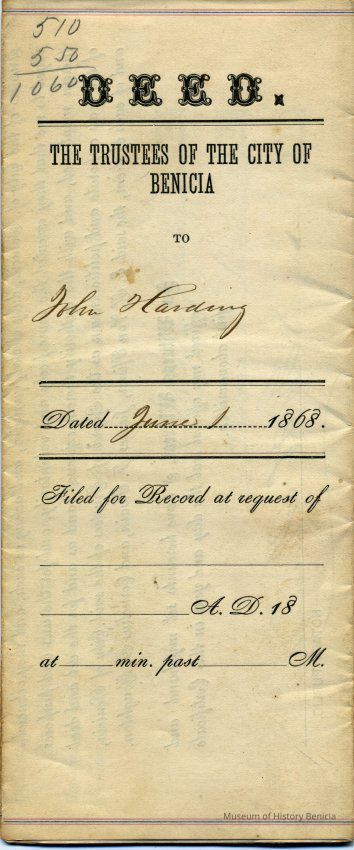 510
550
1060
DEED.
THE TRUSTEES OF THE CITY OF
BENICIA
TO
John Harding
Dated June 1 1868.
Filed for Record at request of
A. D. 18
at min. past M.
Museum of History Benicia